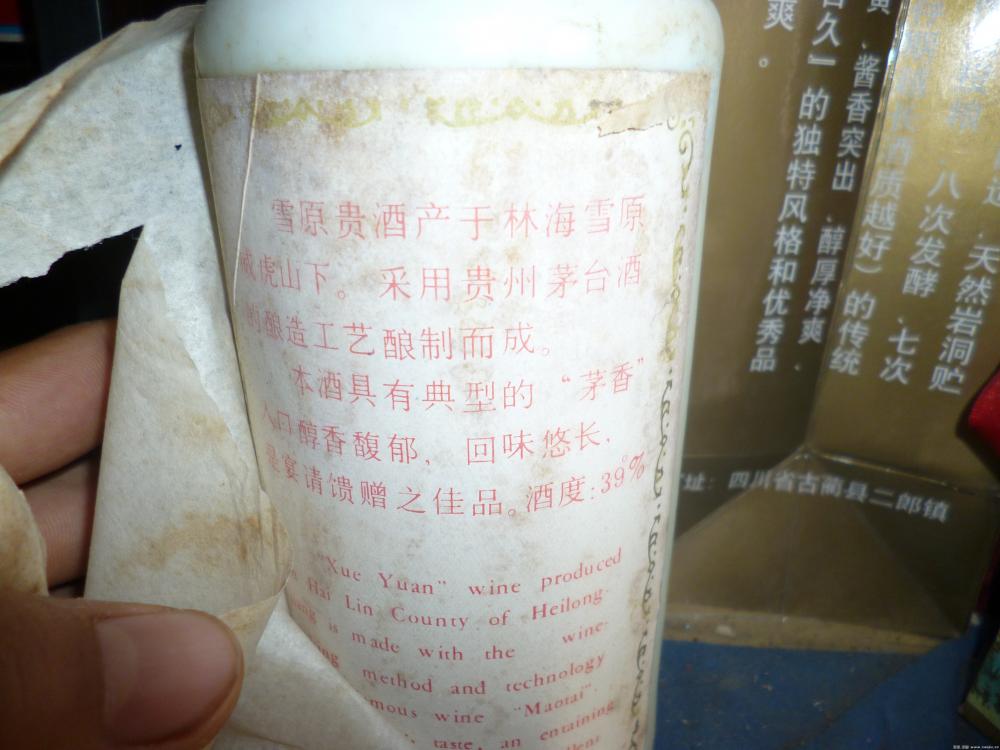 雪原贵酒产于林海雪原
威虎山下。采用贵州茅台酒
的酿造工艺酿制而成。
本酒具有典型的“茅香”
入口醇香馥郁，回味悠长，
是宴请馈赠之佳品。酒度:39°%
"Xue Yuan" wine produced
Hai Lin County of Heilong-
is made with the wine-
method and technology
wine "Maotai".
taste, an entaining
天然岩洞贮
八次发酵、七次
质越好）的传统
酱香突出、醇厚净爽、
』的独特风格和优秀品
爽。
址：四川省古蔺县二郎镇